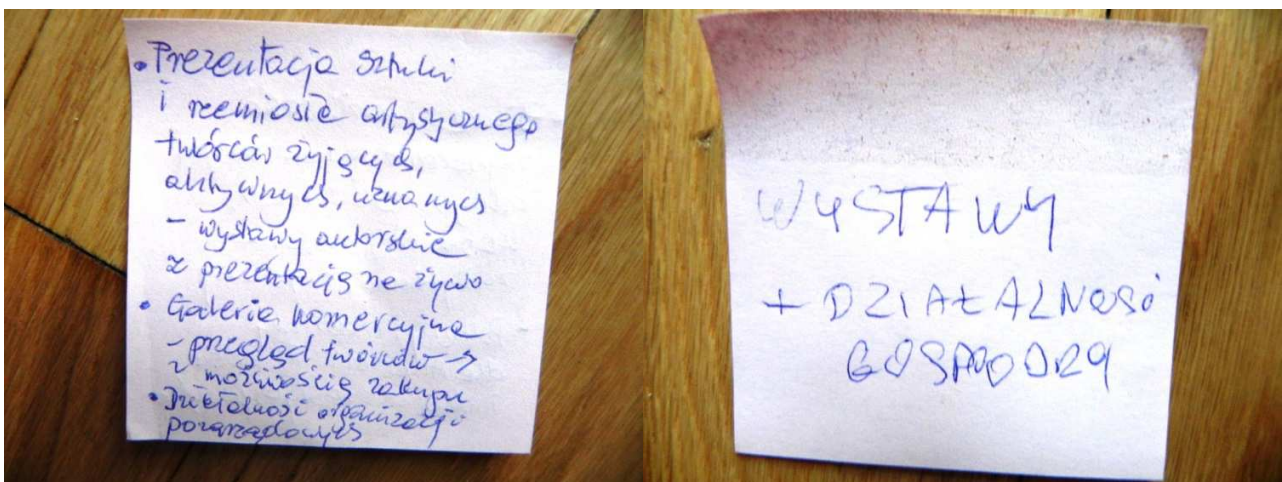 • Prezentacja sztuki
i rzemiosła artystycznego
twórców żyjących,
aktywnych, uznanych
- wystawy autorskie
z prezentacją na żywo
• Galeria komercyjna
- przegląd twórców →
z możliwością zakupu
• Działalność organizacji
pozarządowych
WYSTAWY
+ DZIAŁALNOŚĆ